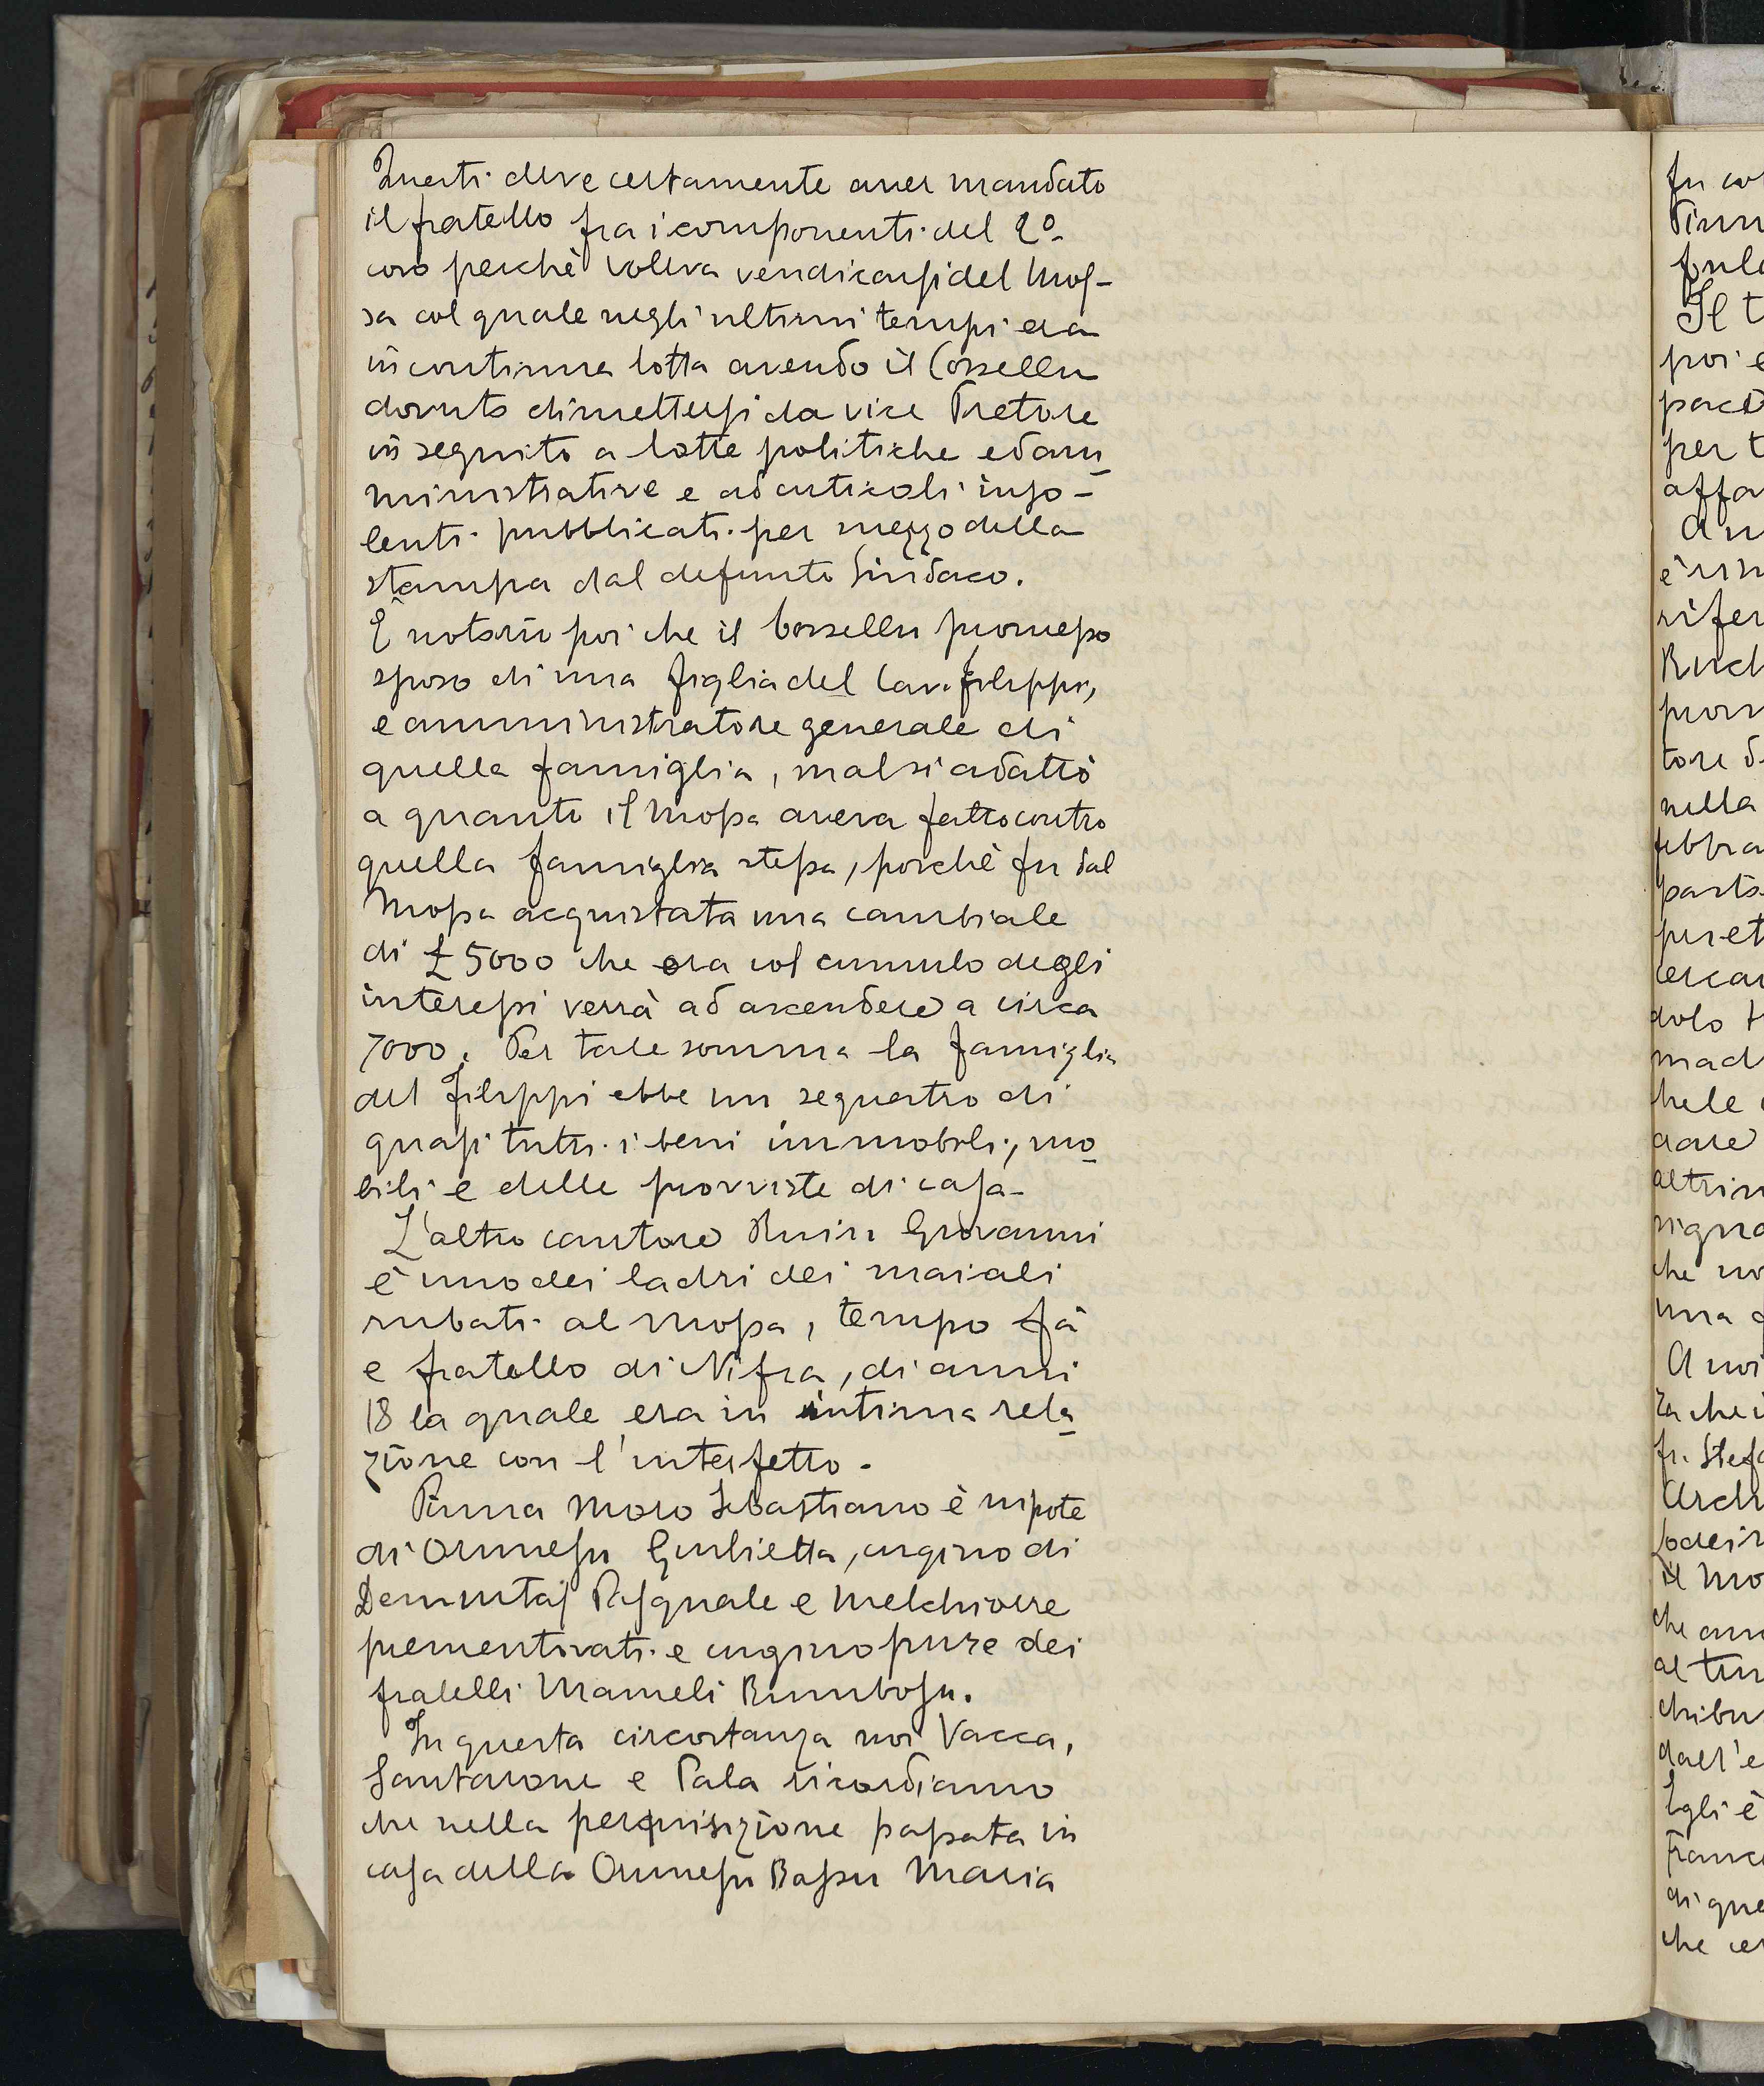 Questi deve certamente aver mandato
il fratello fra i componenti del 2º
coro perchè voleva vendicarsi del Mos-
sa col quale negli ultimi tempi era
in continua lotta avendo il Corsellu
dovuto dimettersi da vice Pretore
in seguito a lotte politiche ed am-
ministrative e ad articoli inso-
lenti pubblicati per mezzo della
stampa dal defunto Sindaco.
È notorio poi che il Corsellu promesso
sposo di una figlia del Cav. Filippi,
e amministratore generale di
quella famiglia, mal si adattò
a quanto il Mossa aveva fatto contro
quella famiglia stessa, poichè fu dal
Mossa acquistata una cambiale
di £ 5000 che ora col cumulo degli
interessi verrà ad ascendere a circa
7000. Per tale somma la famiglia
del Filippi ebbe un sequestro di
quasi tutti i beni immobili, mo-
bili e delle provviste di casa.
L'altro cantore Ruiu Giovanni
è uno dei ladri dei maiali
rubati al Mossa, tempo fà
e fratello di Nifra, di anni
18 la quale era in intima rela-
zione con l'interfetto.
Pinna Moro Sebastiano è nipote
di Orunesu Giulietta, cugino di
Demurtas Pasquale e Melchiorre
prementovati e cugino pure dei
fratelli Mameli Bumbosu.
In questa circostanza noi Vacca,
Santarone e Pala ricordiamo
che nella perquisizione passata in
casa della Orunesu Bassu Maria